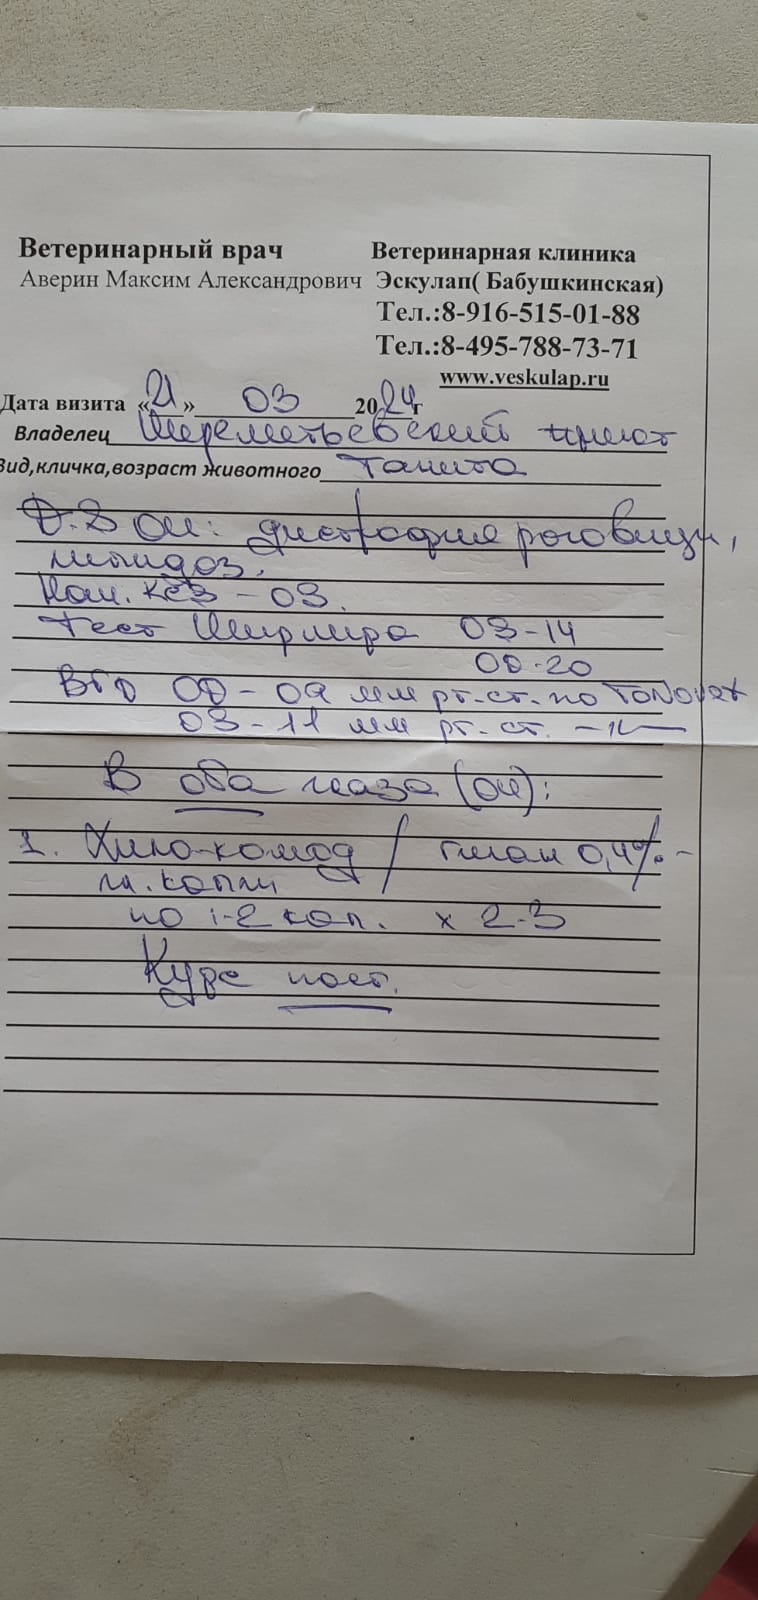 Ветеринарный врач
Аверин Максим Александрович
Ветеринарная клиника
Эскулап( Бабушкинская)
Тел.:8-916-515-01-88
Тел.:8-495-788-73-71
www.veskulap.ru
Дата визита «21» 03 2024г
Владелец Шереметьевский приют
Вид,кличка,возраст животного Танита
D.S ОИ: дистрофия роговицы,
липидоз.
Нач. КСВ - OS.
Тест Ширмера OS-14
OD-20
ВГД OD - 09 мм рт.ст. по Tonovet
OS-11 мм рт. ст. -11-
В оба глаза (ОИ):
1. Хило-комод / Гилан 0,4% -
гл. капли
по 1-2 кап. х 2-3
Курс пост.